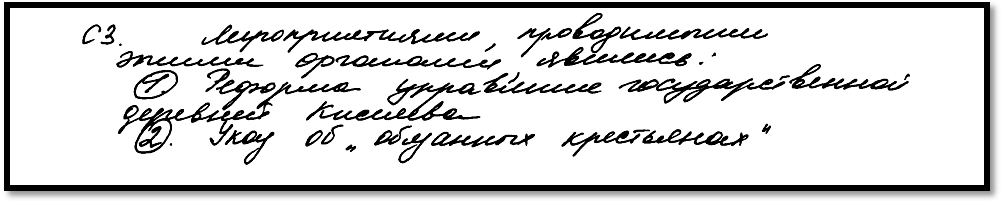 С3. Мероприятиями, проводимыми
этими органами, явились:
① Реформа управление государственной
деревней Киселева
②. Указ об „обязанных крестьянах"